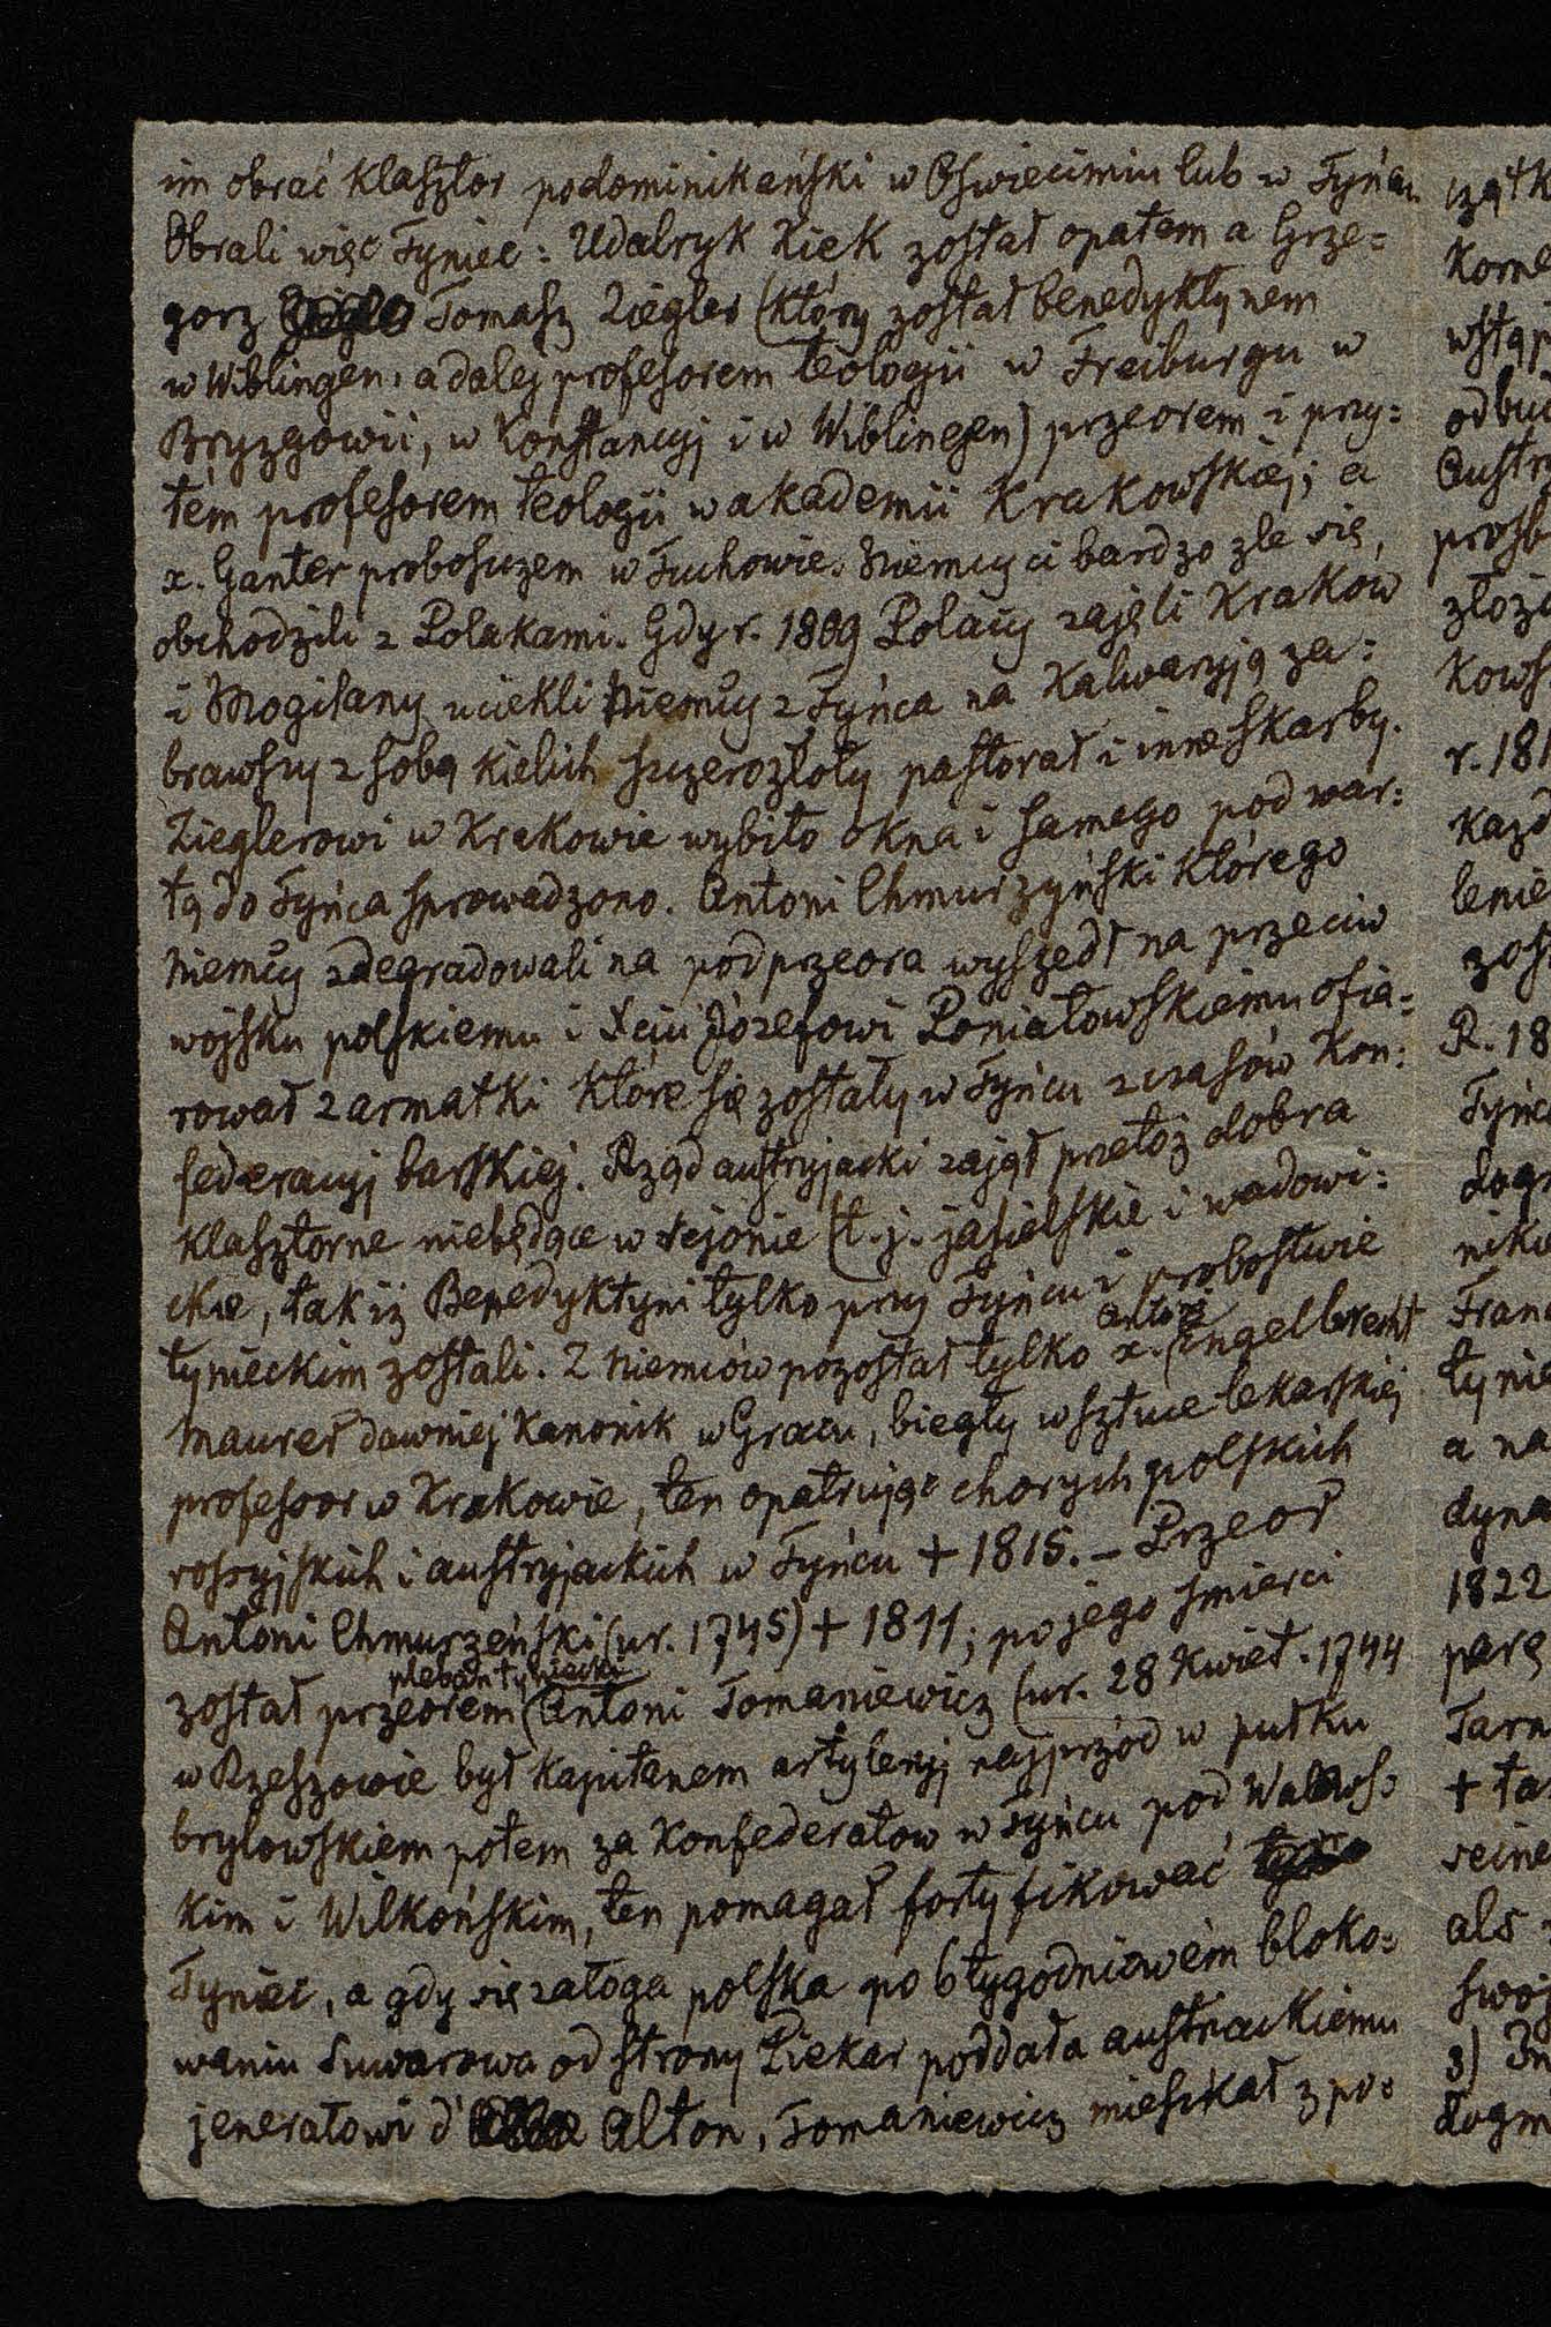 im obrać klasztor podominikański w Oświecimiu lub w Tyńcu.
Obrali więc Tyniec: Udalryk Kiek został opatem a Grze=
gorz Tomasz Ziegler (który został benedyktynem
w Wiblingen, a dalej profesorem teologii w Freiburgu w
Bryzgowii, w Konstancyj i w Wiblingen) przeorem i przy=
tém profesorem teologii w akademii Krakowskiéj; a
x. Ganter proboszczem w Tuchowie. Niemcy ci bardzo zle się
obchodzili z Polakami. Gdy r. 1809 Polacy zajęli Kraków
i Mogilany uciekli Niemcy z Tyńca na Kalwaryją za=
brawszy z sobą kielich szczerozłoty pastorał i inne skarby.
Zieglerowi w Krakowie wybito okna i samego pod war=
tą do Tyńca sprowadzono. Antoni Chmurzyński którego
Niemcy zdegradowali na podprzeora wyszedł na przeciw
wojsku polskiemu i Xciu Józefowi Poniatowskiemu ofia=
rował 2 armatki które się zostały w Tyńcu z czasów Kon=
federacyj barskiéj. Rząd austryjacki zajął przetoż dobra
klasztorne niebędące w rejonie (t. j. jasielskie i wadowi=
ckie, tak iż Benedyktyni tylko przy Tyńcu i probostwie
tynieckim zostali. Z Niemców pozostał tylko x. (Antoni Engelbrecht
Maurer dawniej Kanonik w Gracu, biegły w sztuce lekarskiéj
profesoor w Krakowie, ten opatrując chorych polskich
rossyjskich i austryjackich w Tyńcu + 1815. – Przeor
Antoni Chmurzeński (ur. 1745) + 1811; po jego smierci
został przeorem (pleban tyniecki Antoni Tomaniewicz (ur. 28 Kwiet. 1744
w Rzeszowie był kapitanem artyleryj najprzód w pułku
brylowskiem potem za Konfederatow w Tyńcu pod Walews=
kim i Wilkońskim, ten pomagał fortyfikować
Tyniec, a gdy się załoga polska po 6 tygodniowém bloko=
waniu Suwarowa od strony Piekar poddała austriackiemu
jenerałowi d' Alton, Tomaniewicz mieszkał z po=